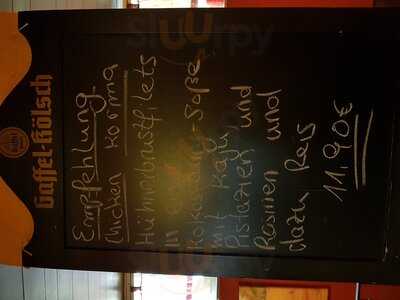 Gaffel-Kölsch
Empfehlung
Chicken Korma
Hühnerbrustfilets
in
Kokosnuß-Soße
mit Kaju
Pistazien und
Rosinen und
dazu Reis
11,90€